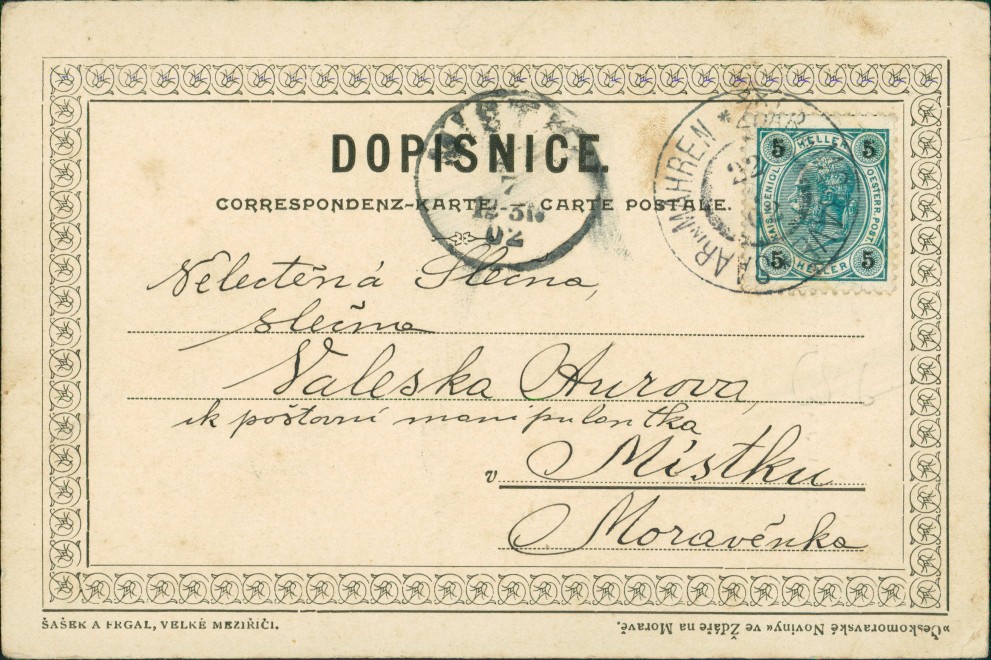 DOPISNICE.
CORRESPONDENZ-KARTE. — CARTE POSTALE.
MISTEK
7
12-3N
02
SAAR IN MÄHREN *
22
5 HELLER 5
KAIS. KOENIGL.
OESTERR. POST.
5 HELLER 5
Velectěná Slečna,
slečna
Valeska
ck poštovní manipulantka
v Místku
Moravěnka
ŠAŠEK A FRGAL, VELKÉ MEZIŘIČI.
»Českomoravské Noviny« ve Žďáře na Moravě.